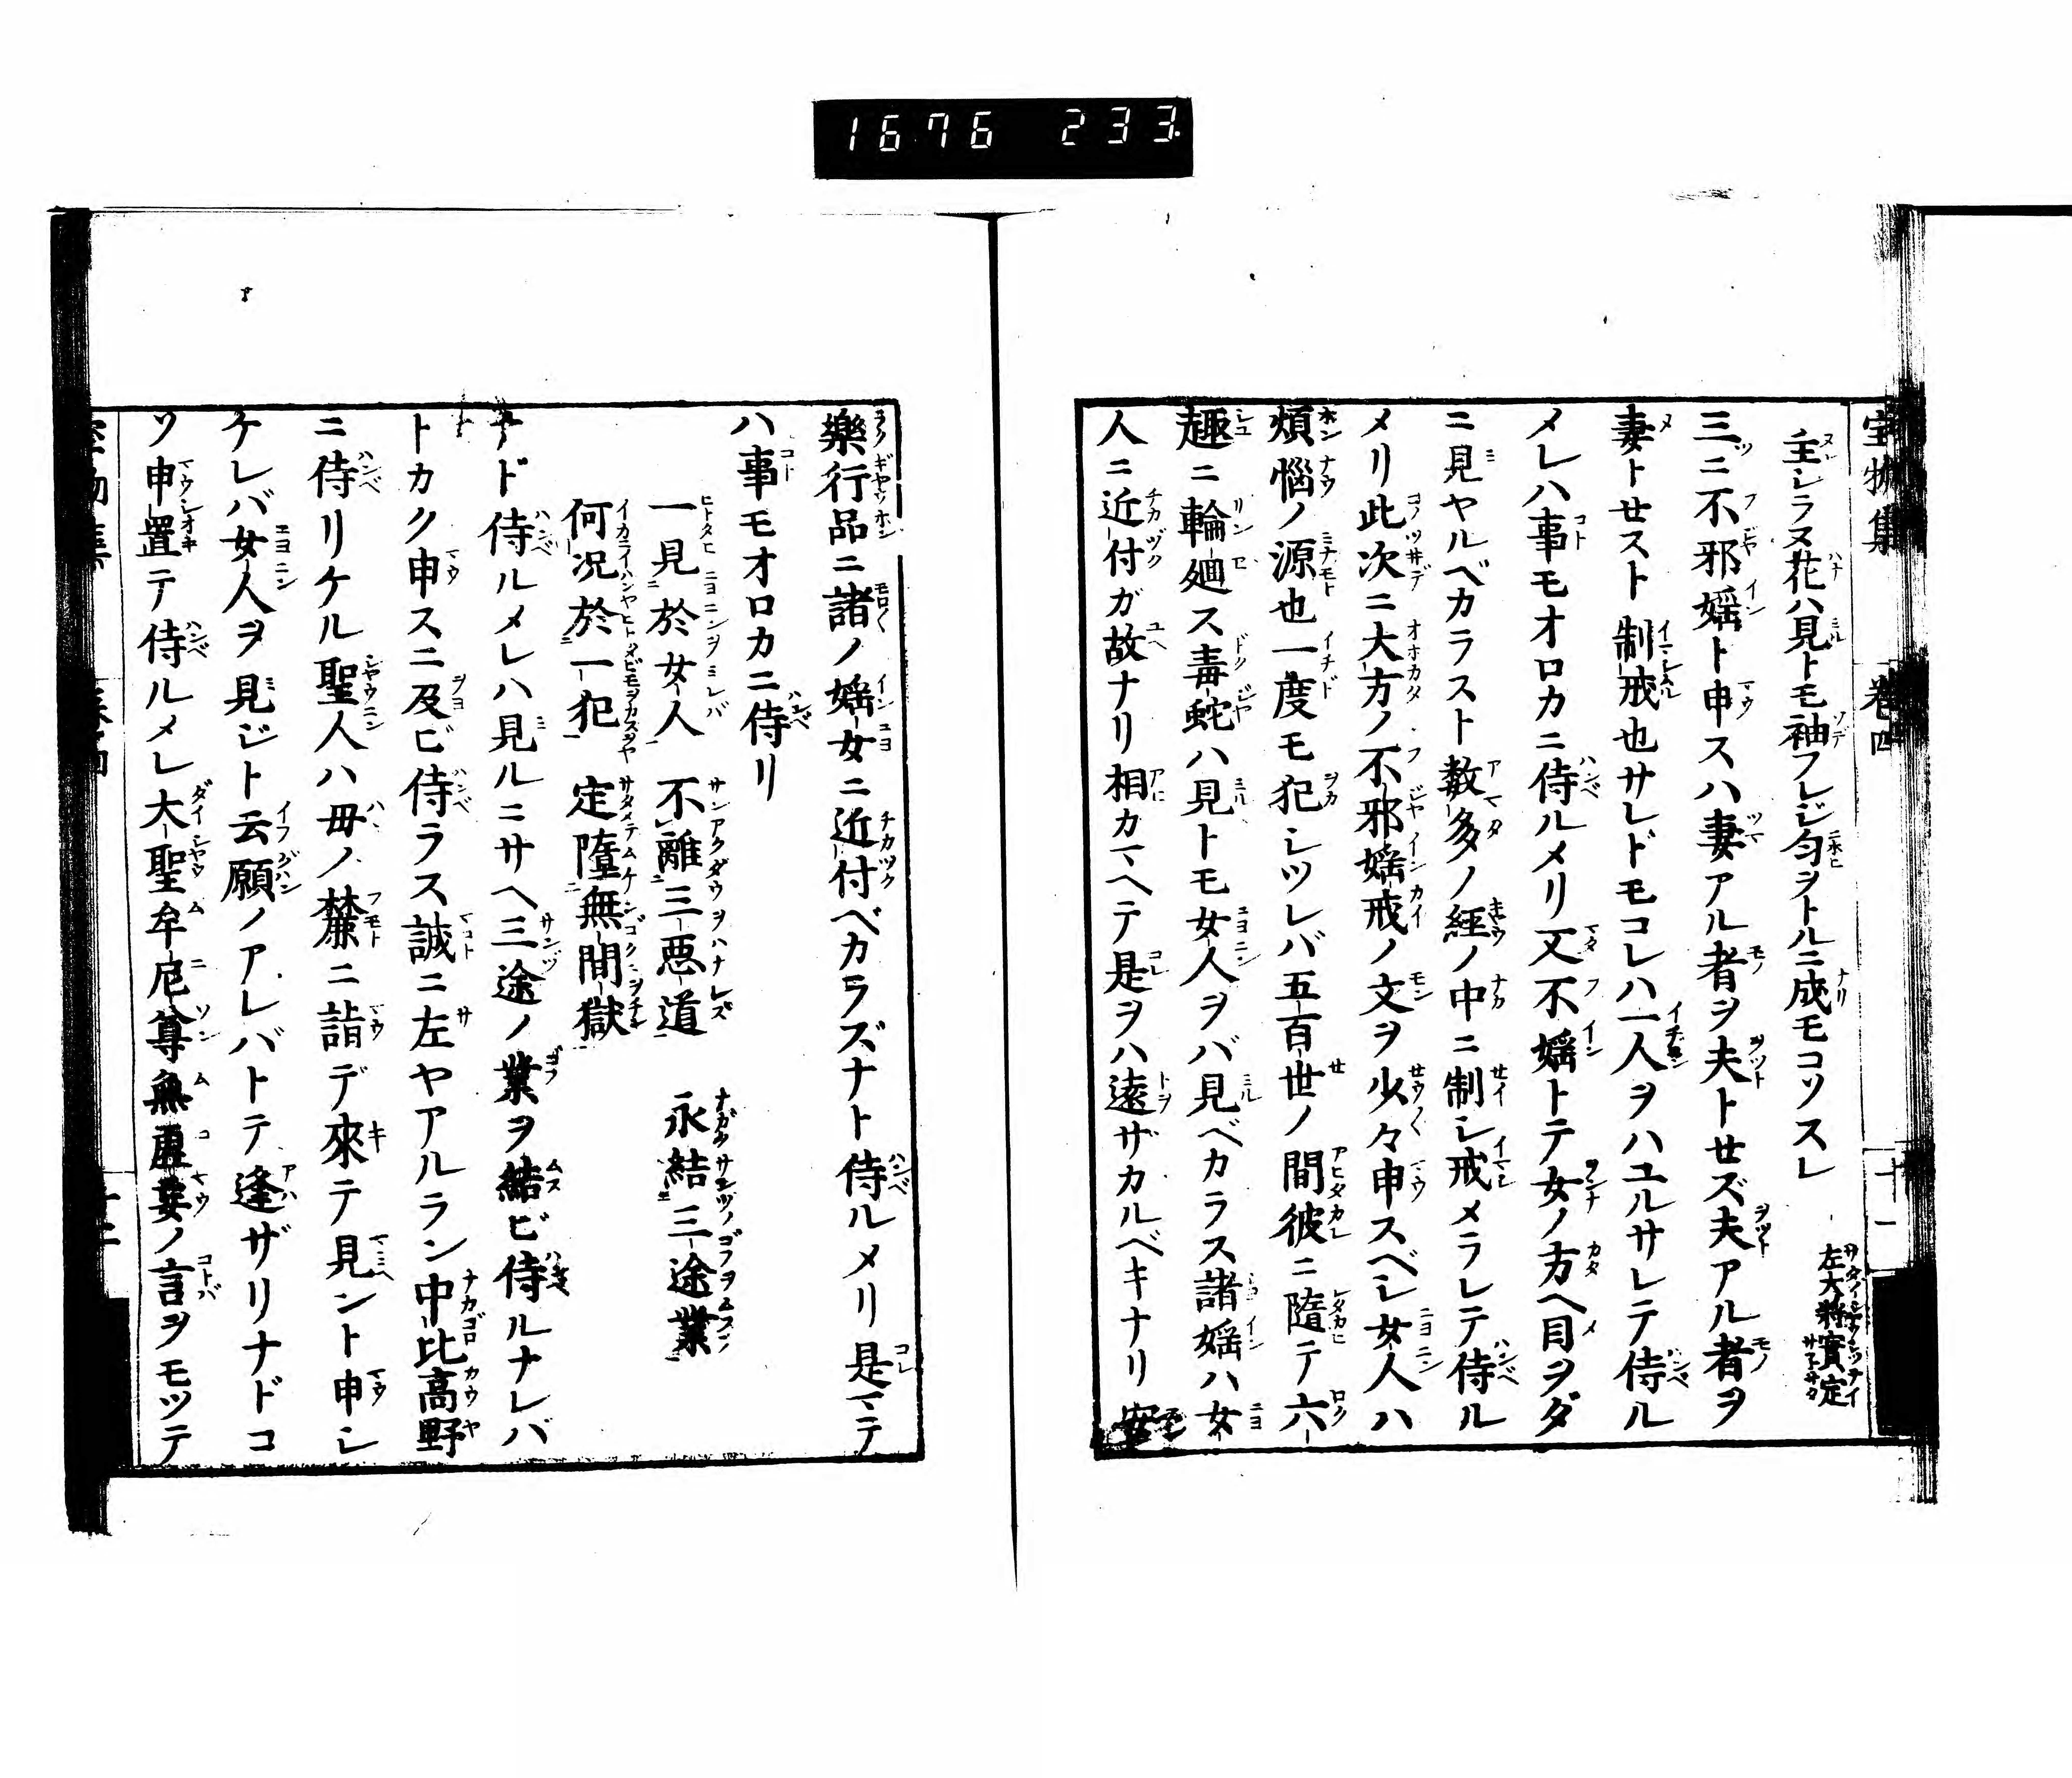 1676 233
宝物集 巻四 十一
主シラヌ花ハ見トモ袖フレジ匂ヲトルニ成モコソスレ 左大将實定
三ニ不邪婬ト申スハ妻アル者ヲ夫トせズ夫アル者ヲ
妻トせスト制戒也サレドモコレハ一人ヲハユルサレテ侍ル
メレハ事モオロカニ侍ルメリ又不婬トテ女ノ方ヘ目ヲダ
ニ見ヤルベカラスト数多ノ経ノ中ニ制シ戒メラレテ侍ル
メリ此次ニ大方ノ不邪婬戒ノ文ヲ少々申スベシ女人ハ
煩悩ノ源也一度モ犯シツレバ五百世ノ間彼ニ隨テ六
趣ニ輪廻ス毒蛇ハ見トモ女人ヲバ見ベカラス諸婬ハ女
人ニ近付ガ故ナリ相カマヘテ是ヲハ遠ザカルベキナリ安
樂行品ニ諸ノ婬女ニ近付ベカラズナト侍ルメリ是マテ
ハ事モオロカニ侍リ
一見於女人 不離三悪道 永結三途業
何況於一犯 定墮無間獄
ナド侍ルメレハ見ルニサヘ三途ノ業ヲ結ビ侍ルナレバ
トカク申スニ及ビ侍ラス誠ニ左ヤアルラン中比高野
ニ侍リケル聖人ハ母ノ麓ニ詣デ來テ見ント申シ
ケレバ女人ヲ見ジト云願ノアレバトテ逢ザリナドコ
ソ申置テ侍ルメレ大聖牟尼尊無虚妄ノ言ヲモツテ